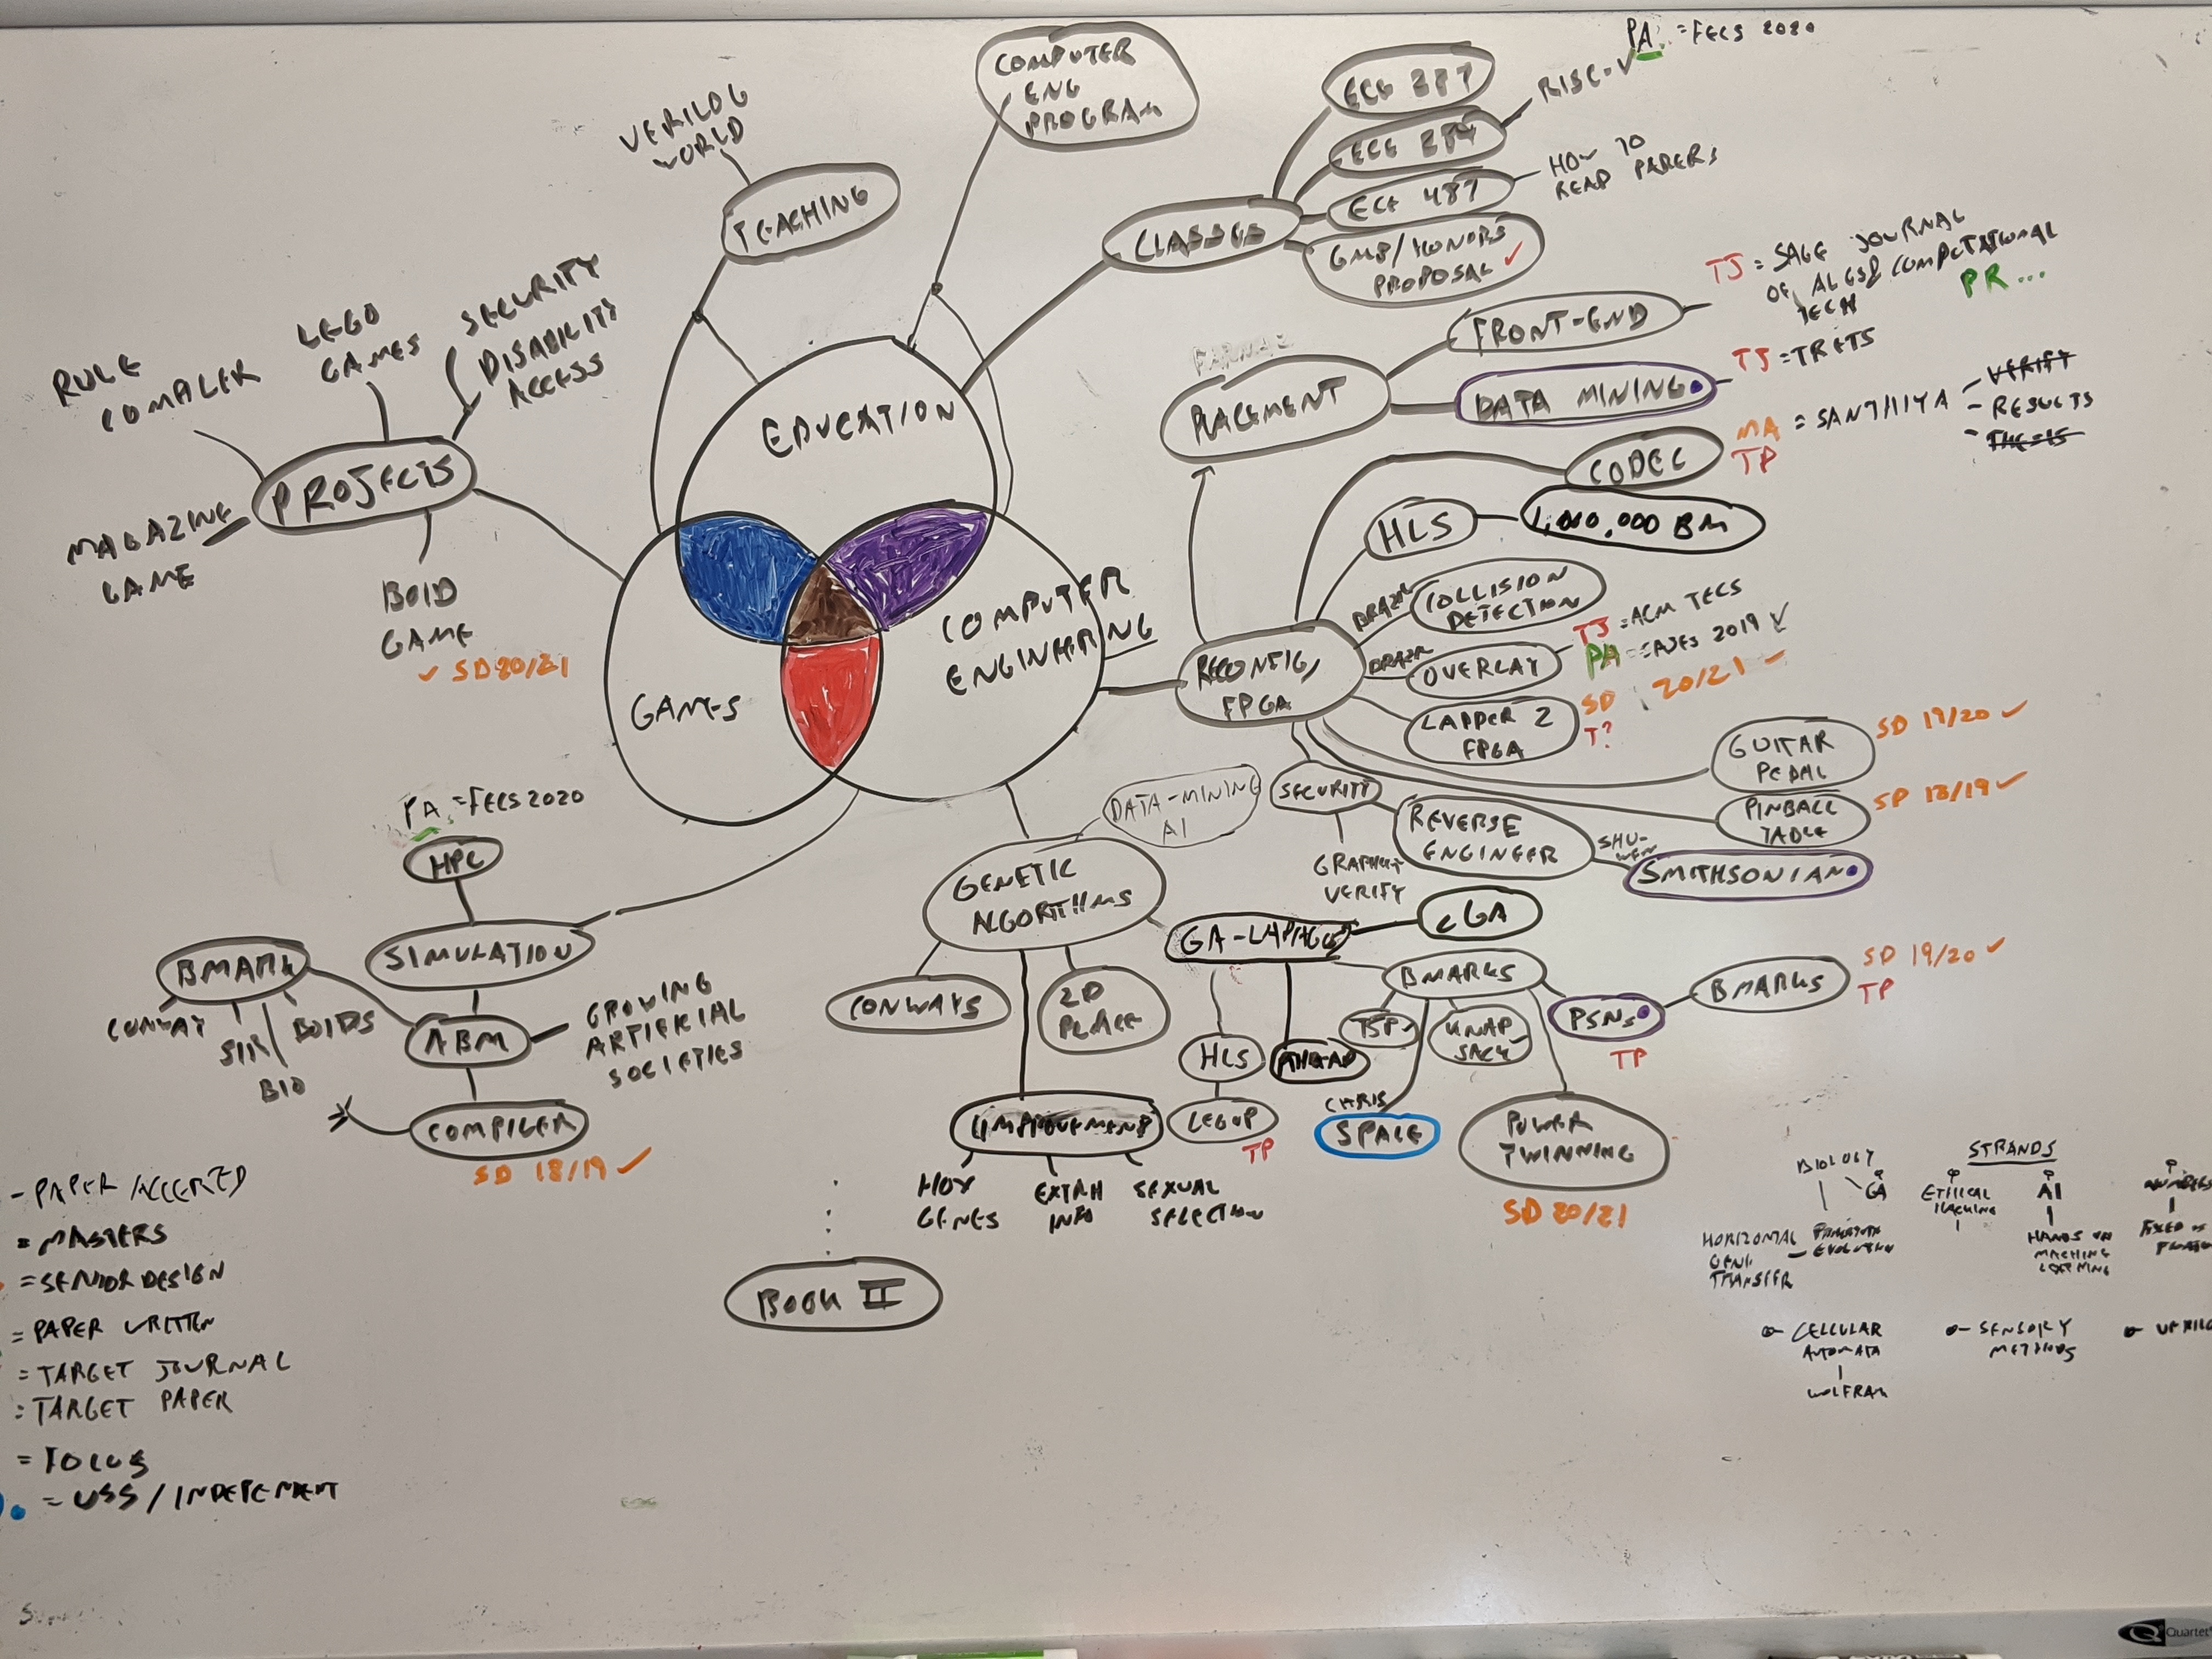 COMPUTER
ENG
PROGRAM
VERILOG
WORLD
TEACHING
CLASSES
ECE 287
ECE 289
RISC-V
PA = FECS 2020
ECE 487
HOW TO
READ PAPERS
GMB/HONORS
PROPOSAL ✓
RULE
COMPILER
LEGO
GAMES
SECURITY
DISABILITY
ACCESS
PROJECTS
MAGAZINE
GAME
BOID
GAME
✓ SD 20/21
EDUCATION
GAMES
COMPUTER
ENGINEERING
PLACEMENT
FRONT-END
TJ = SAGE JOURNAL
OF ALGS & COMPUTATIONAL
TECH
PR...
DATA MINING
TJ = TRETS
CODEC
MA = SANTHIYA
TP
- VERIFY
- RESULTS
- THESIS
HLS
1,000,000 BM
BRAZIL
COLLISION
DETECTION
BRAZIL
OVERLAY
TJ = ACM TECS
PA = 2019 ✓
RECONFIG/
FPGA
LAPPER 2
FPGA
SD 20/21 ✓
T?
GUITAR
PEDAL
SD 19/20 ✓
PINBALL
TABLE
SD 18/19 ✓
SECURITY
GRAPH
VERIFY
REVERSE
ENGINEER
SHU-
SMITHSONIAN
DATA-MINING
AI
GENETIC
ALGORITHMS
GA-LAPAGOS
cGA
CONWAYS
2D
PLACE
BMARKS
TSP
KNAP
SACK
PSNs
TP
BMARKS
SD 19/20 ✓
TP
HLS
LEGUP
TP
CHRIS
SPACE
POWER
TWINNING
SD 20/21
IMPROVEMENT
HOX
GENES
EXTRA
INFO
SEXUAL
SELECTION
BOOK II
PA = FECS 2020
HPC
SIMULATION
BMARK
CONWAY
SIR
BIO
BOIDS
ABM
GROWING
ARTIFICIAL
SOCIETIES
COMPILER
SD 18/19 ✓
- PAPER ACCEPTED
= MASTERS
= SENIOR DESIGN
= PAPER WRITTEN
= TARGET JOURNAL
= TARGET PAPER
= FOCUS
= USS / INDEPENDENT
STRANDS
BIOLOGY
GA
HORIZONTAL
GENE
TRANSFER
EVOLUTION
ETHICAL
TEACHING
AI
HANDS ON
MACHINE
LEARNING
NUMBERS
CELLULAR
AUTOMATA
WOLFRAM
SENSORY
METHODS
Quartet